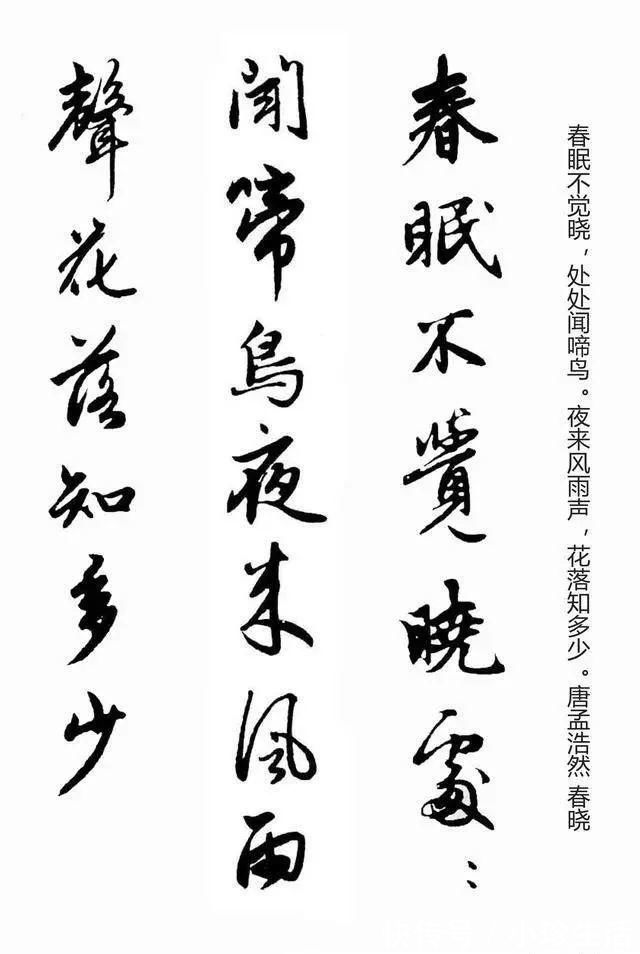 春眠不觉晓，处处闻啼鸟。夜来风雨声，花落知多少。唐孟浩然 春晓
春眠不覺曉處︰
聞啼鳥夜来風雨
聲花落知多少
快传号／小珍生活